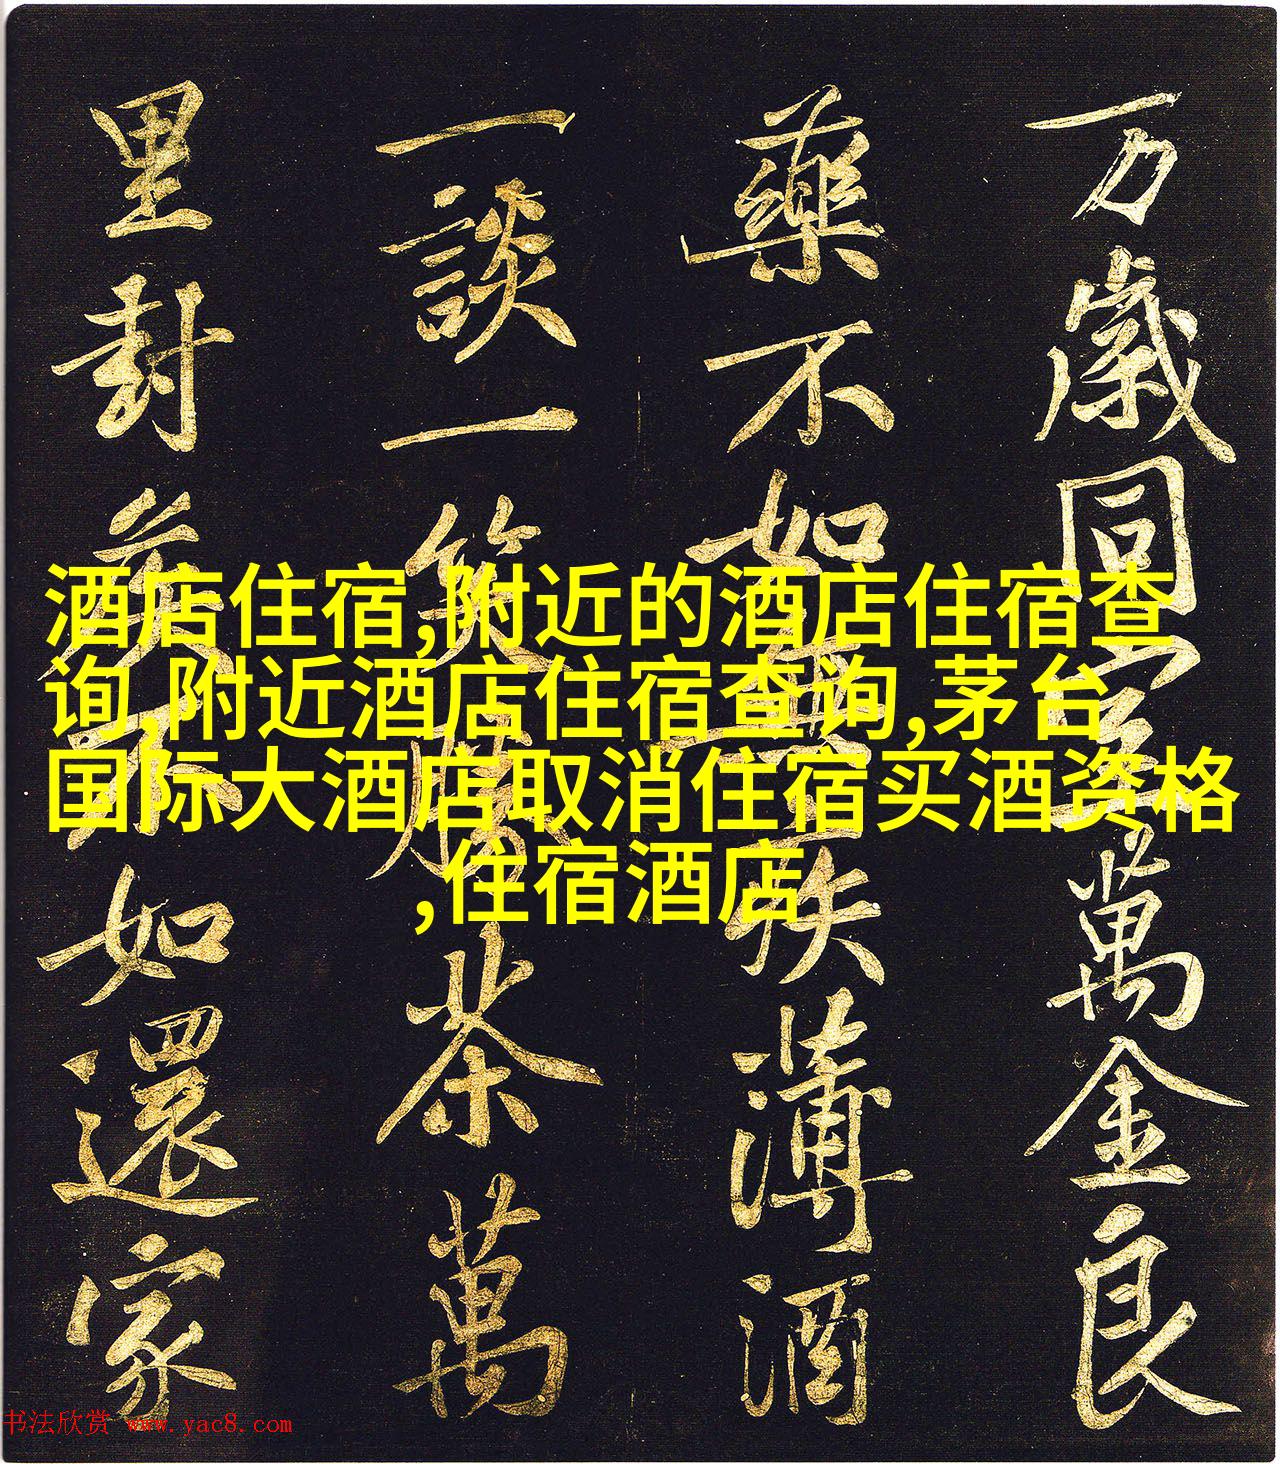 万歲同室萬金良
藥不如無疾薄酒
一談一笑勝茶萬
里封侯不如還家
酒店住宿,附近的酒店住宿查
询,附近酒店住宿查询,茅台
国际大酒店取消住宿买酒资格
,住宿酒店
书法欣赏 www.yac8.com